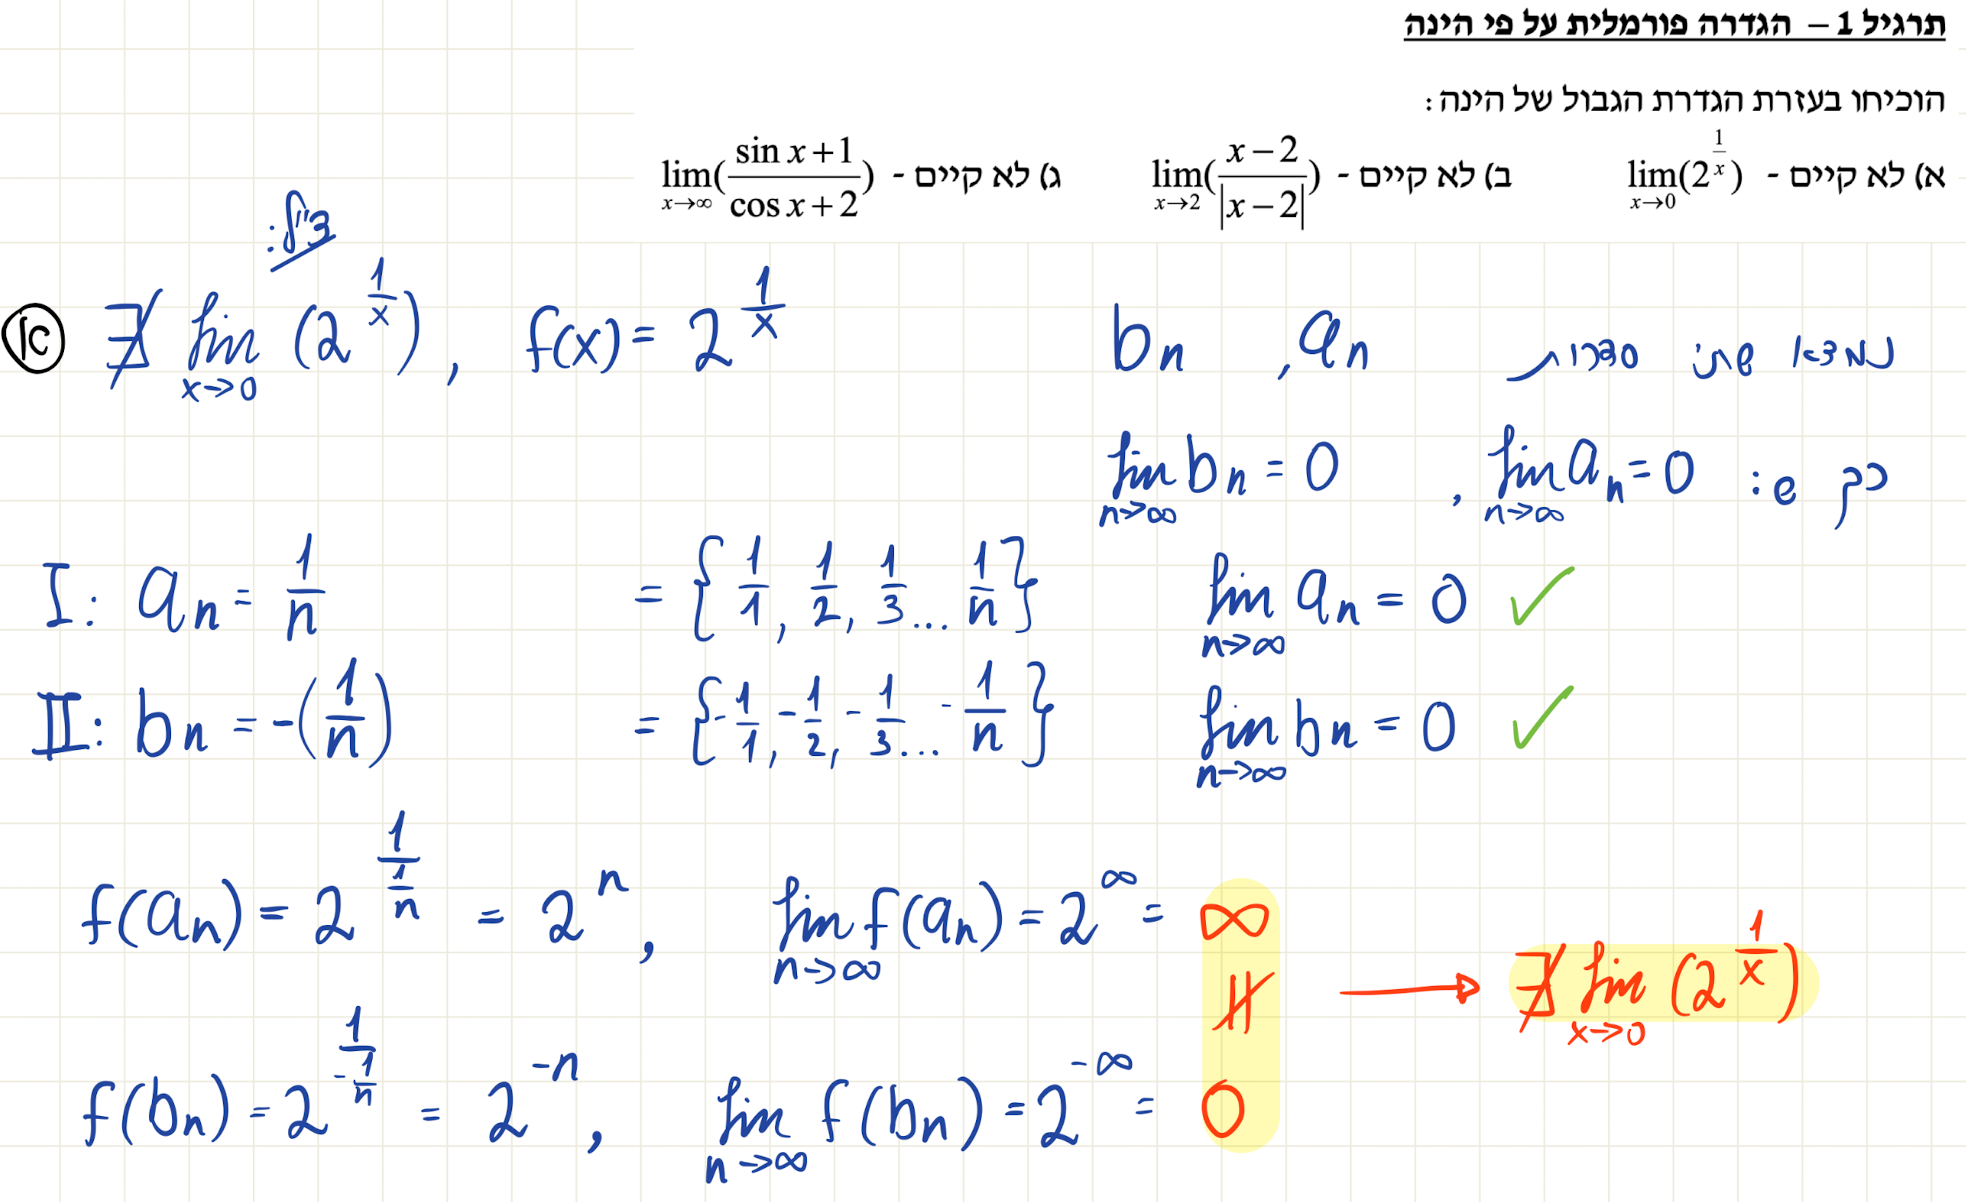 תרגיל 1 – הגדרה פורמלית על פי הינה
הוכיחו בעזרת הגדרת הגבול של הינה:
א) לא קיים - lim_{x→0}(2^{1/x}) ב) לא קיים - lim_{x→2}((x−2)/|x−2|) ג) לא קיים - lim_{x→∞}((sin x+1)/(cos x+2))
צ"ל:
א ∄ lim_{x→0} (2^{1/x}), f(x) = 2^{1/x}
נמצא שתי סדרות a_n, b_n
כך ש: lim_{n→∞} a_n = 0, lim_{n→∞} b_n = 0
I: a_n = 1/n = {1/1, 1/2, 1/3... 1/n} lim_{n→∞} a_n = 0 ✓
II: b_n = -(1/n) = {-1/1, -1/2, -1/3... -1/n} lim_{n→∞} b_n = 0 ✓
f(a_n) = 2^{1/(1/n)} = 2^n, lim_{n→∞} f(a_n) = 2^∞ = ∞
≠ → ∄ lim_{x→0} (2^{1/x})
f(b_n) = 2^{1/(-1/n)} = 2^{-n}, lim_{n→∞} f(b_n) = 2^{-∞} = 0